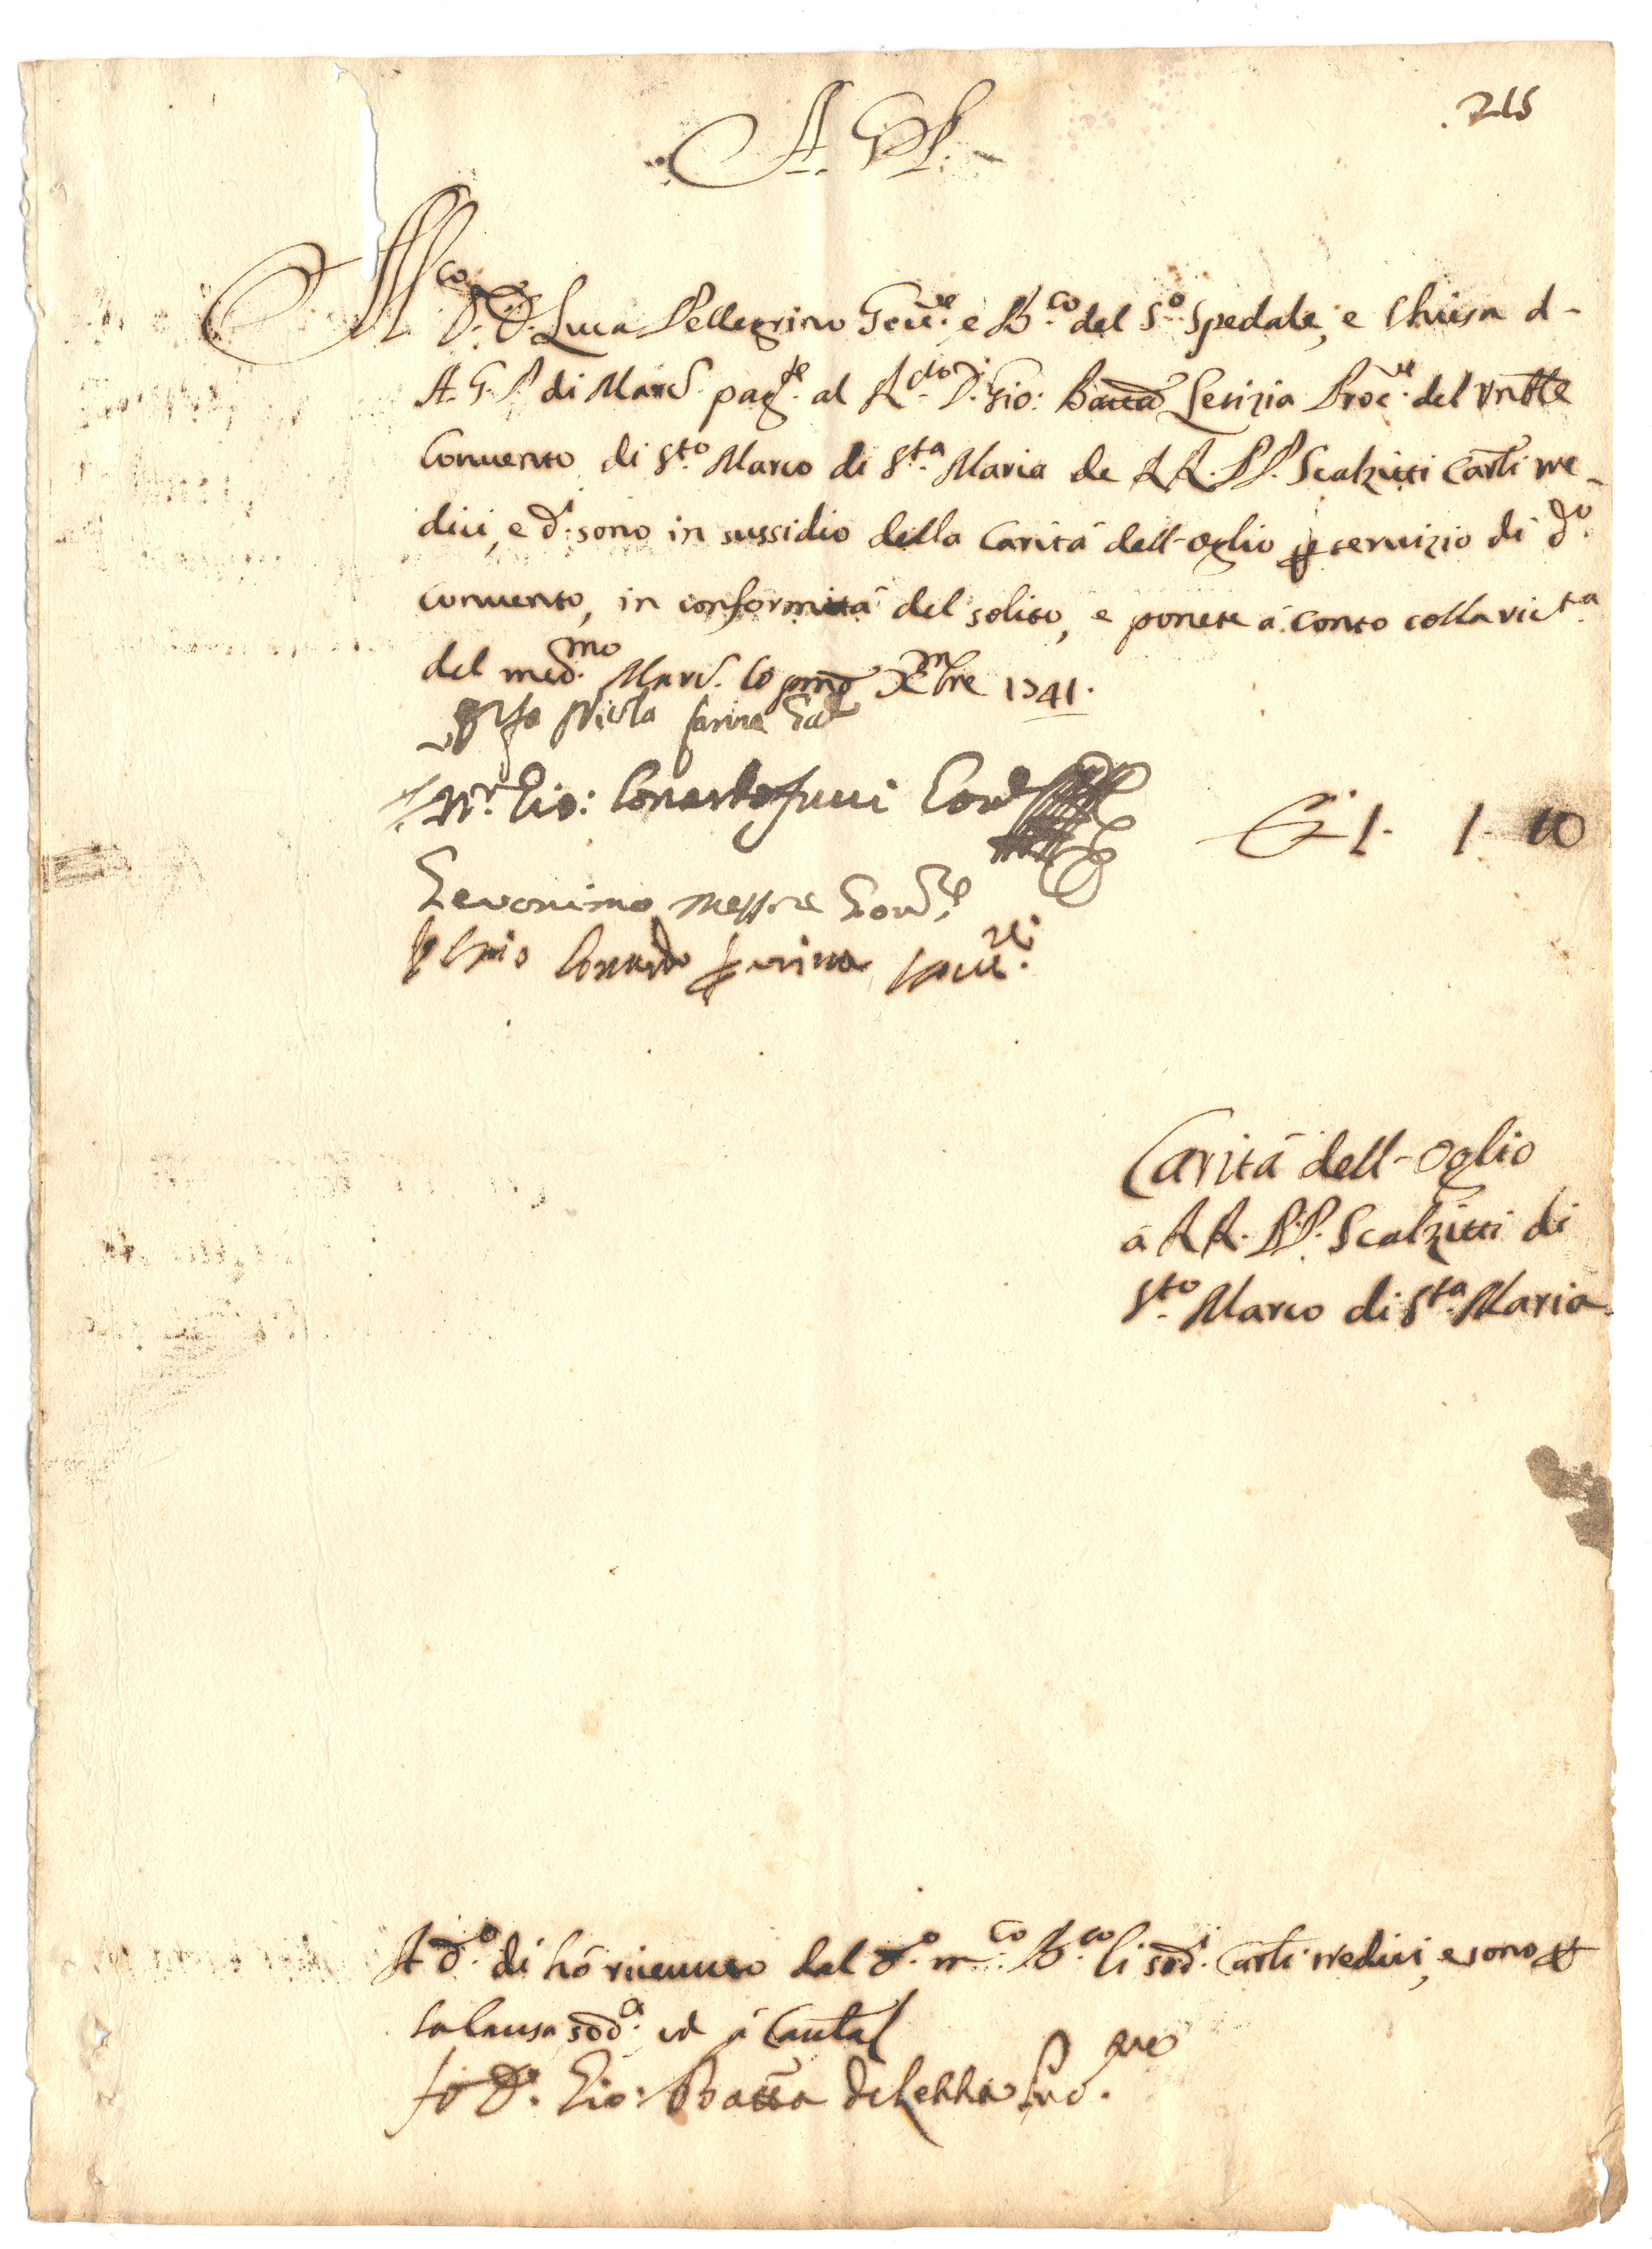 215
A. G. P.
M.co D. D. Luca Pellegrino Gov.re e B.co del S.o Spedale, e Chiesa d-
A. G. P. di Mard. pag.te al R.do D. Gio: Batta Letizia Proc.re del Vnble
Convento di S.to Marco di S.ta Maria de RR. PP. Scalzitti Carli tre-
dici, e d.i sono in sussidio della Carità dell-oglio p servizio di d.o
Convento, in conformità del solito, e ponete á conto colla ric.ta
del med.mo Mard. lo pmo Xmbre 1741.
Nicola farina
Gio: Conardo
Geronimo Messere Gov.re
Gov.re
1- 1- 10
Carità dell-oglio
a RR. PP. Scalzitti di
S.to Marco di S.ta Maria
A d.o di hó ricevuto dal d.o m.co B.co li sod.i Carli tredici, e sono p
la causa sod.a ed á Cautal
Io D. Gio: Batta Proc.re